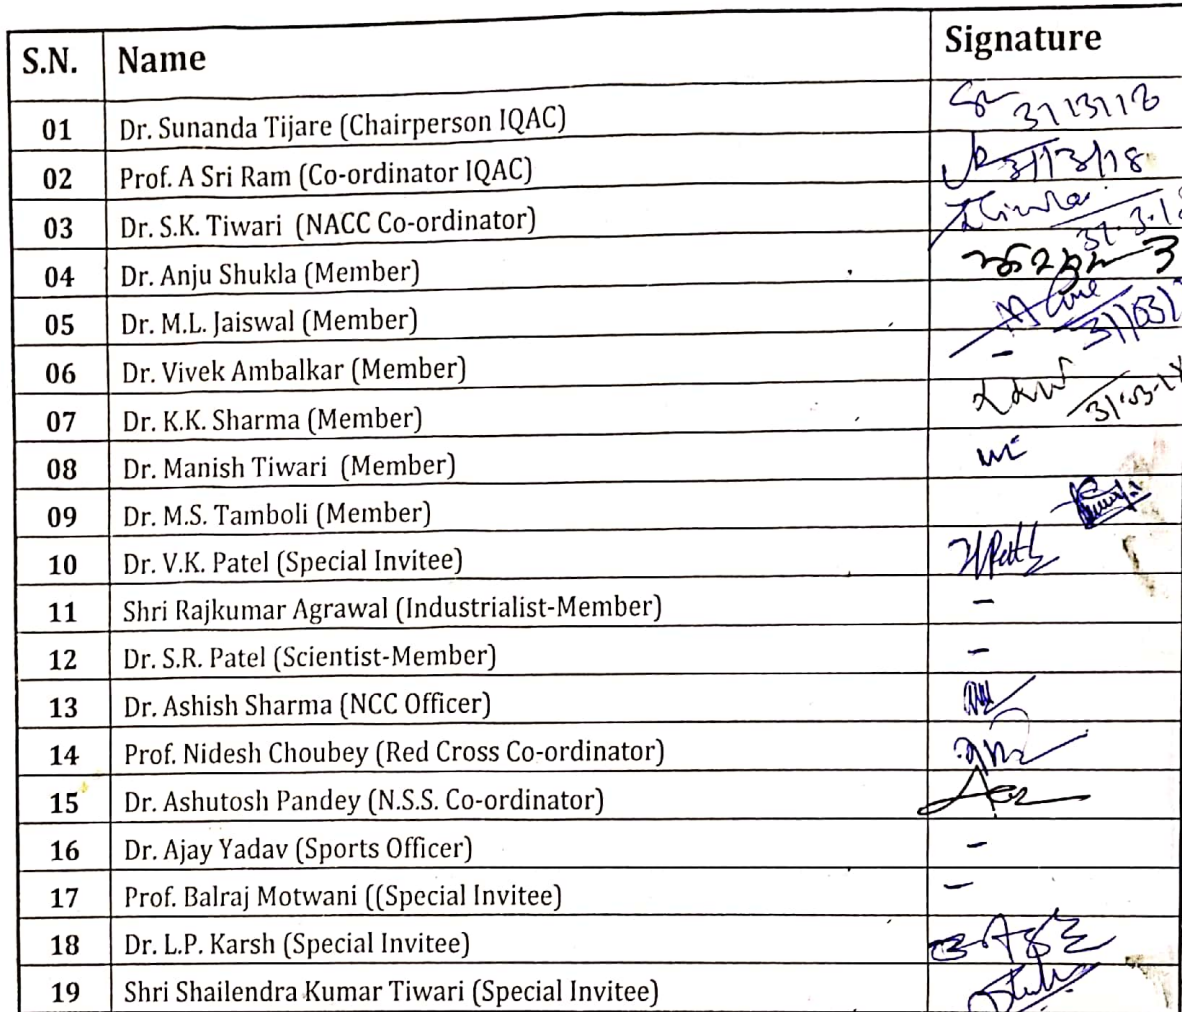 S.N. Name Signature
01 Dr. Sunanda Tijare (Chairperson IQAC) 31/3/18
02 Prof. A Sri Ram (Co-ordinator IQAC) 31/3/18
03 Dr. S.K. Tiwari (NACC Co-ordinator) 31.3.18
04 Dr. Anju Shukla (Member)
05 Dr. M.L. Jaiswal (Member) 31/03/
06 Dr. Vivek Ambalkar (Member) -
07 Dr. K.K. Sharma (Member) 31.03.18
08 Dr. Manish Tiwari (Member)
09 Dr. M.S. Tamboli (Member)
10 Dr. V.K. Patel (Special Invitee)
11 Shri Rajkumar Agrawal (Industrialist-Member) -
12 Dr. S.R. Patel (Scientist-Member) -
13 Dr. Ashish Sharma (NCC Officer)
14 Prof. Nidesh Choubey (Red Cross Co-ordinator)
15 Dr. Ashutosh Pandey (N.S.S. Co-ordinator)
16 Dr. Ajay Yadav (Sports Officer) -
17 Prof. Balraj Motwani ((Special Invitee) -
18 Dr. L.P. Karsh (Special Invitee)
19 Shri Shailendra Kumar Tiwari (Special Invitee)